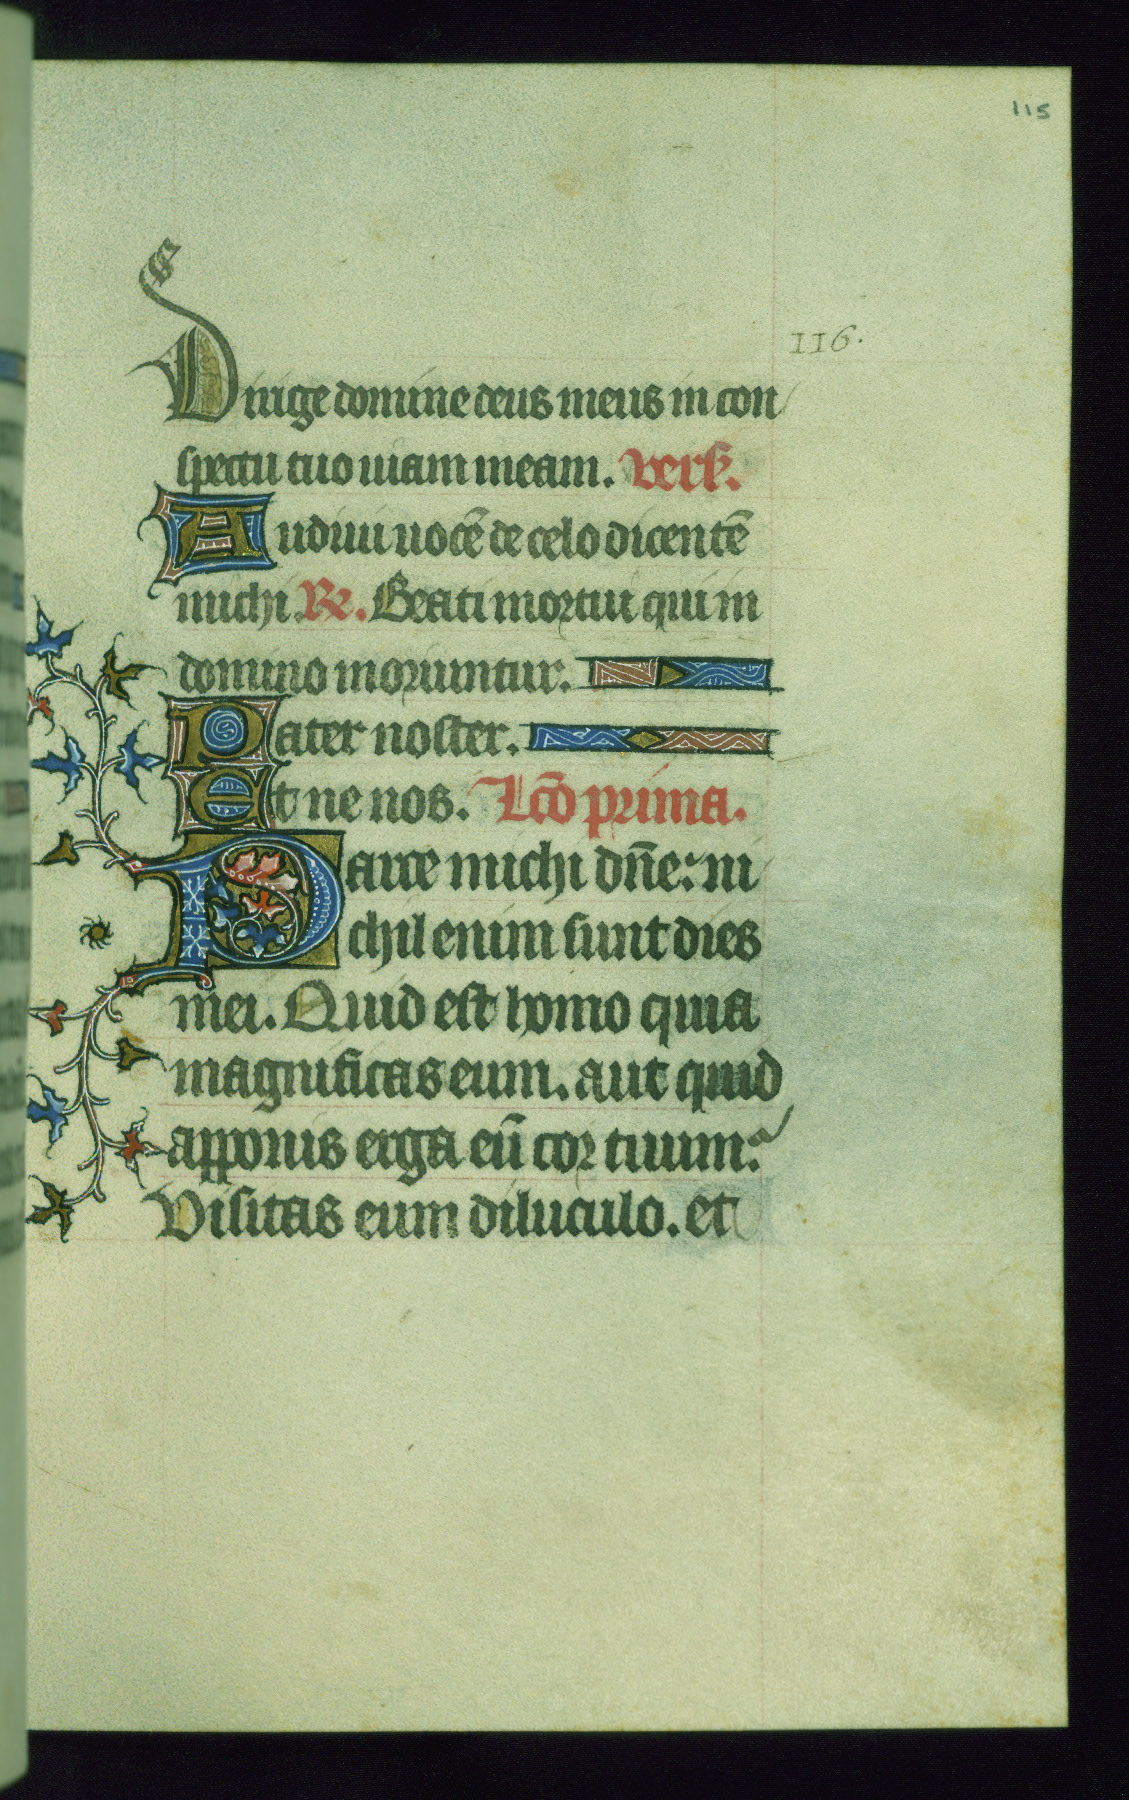 115
116.
Dirige domine deus meus in con
spectu tuo uiam meam. vers.
Audiui uocē de celo dicentē
michi. R. Beati mortui qui in
domino moriuntur.
Pater noster.
Et ne nos. Lcō prima.
Parce michi dn̄e: ni
chil enim sunt dies
mei. Quid est homo quia
magnificas eum. aut quid
apponis erga eū cor tuum:
Visitas eum diluculo. et